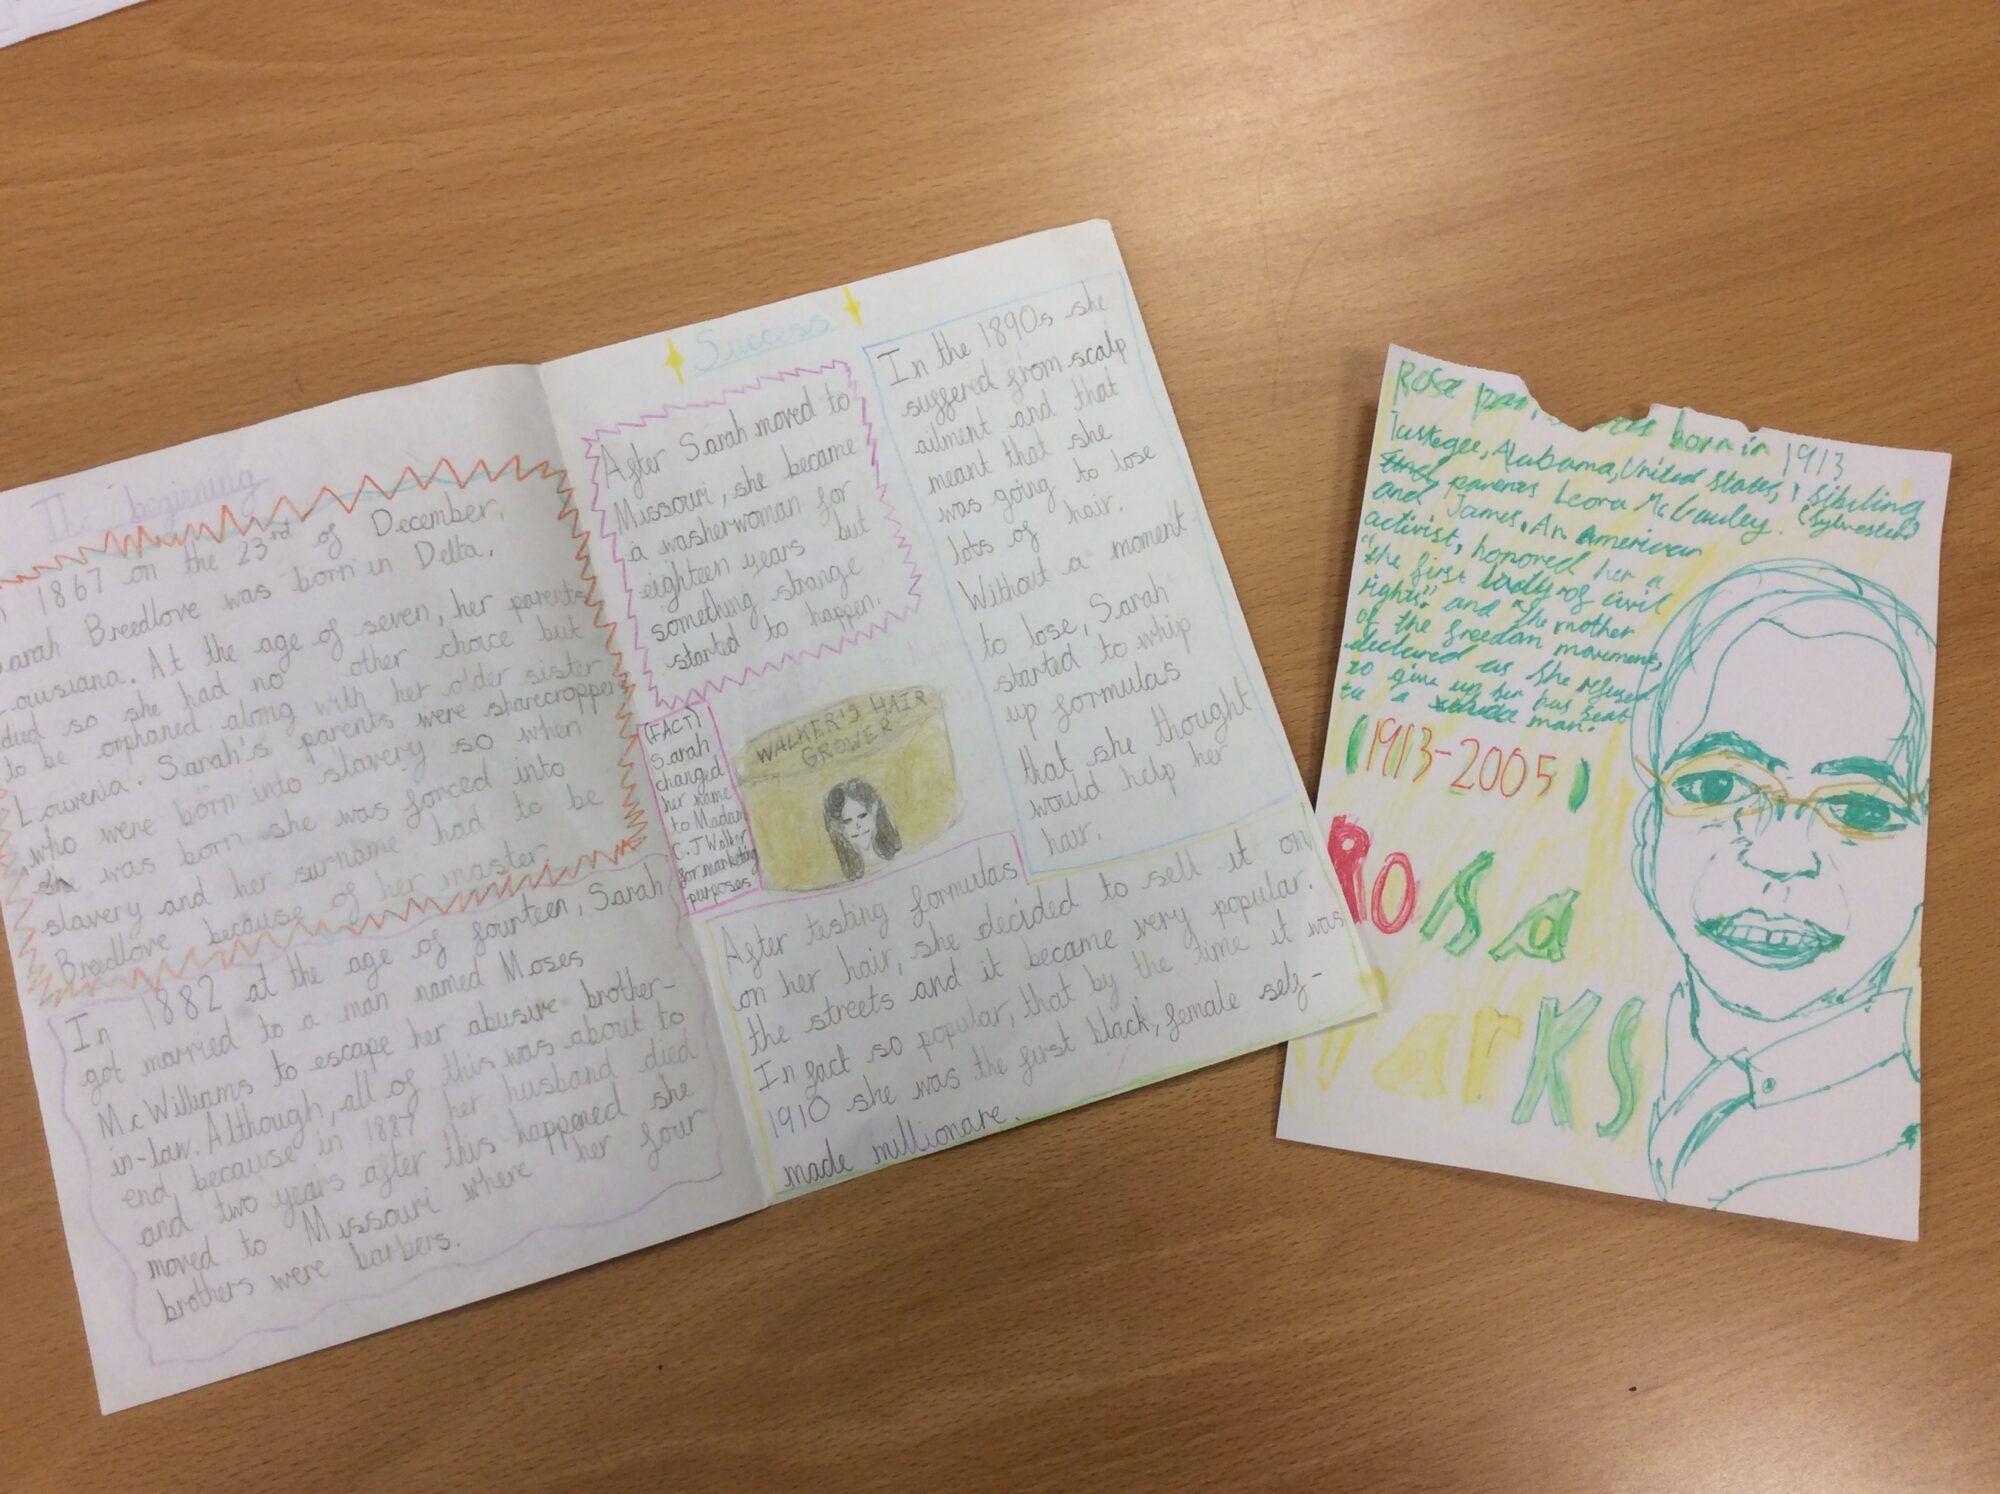 The beginning
1867 on the 23rd of December,
Sarah Breedlove was born in Delta,
Lousiana. At the age of seven, her parents
died so she had no other choice but
to be orphaned along with her older sister
Lourenia. Sarah's parents were sharecroppers
who were born into slavery so when
she was born she was forced into
slavery and her surname had to be
Breedlove because of her master
In 1882 at the age of fourteen, Sarah
got married to a man named Moses
McWilliams to escape her abusive brother-
in-law. Although, all of this was about to
end because in 1887 her husband died
and two years after this happened she
moved to Missouri where her four
brothers were barbers.
Success
After Sarah moved to
Missouri, she became
a washerwoman for
eighteen years but
something strange
started to happen.
(FACT)
Sarah
changed
her name
to Madam
C.J Walker
for marketing
purposes
WALKER'S HAIR
GROWER
In the 1890s she
suggered from scalp
ailment and that
meant that she
was going to lose
lots of hair.
Without a moment
to lose, Sarah
started to whip
up formulas
that she thought
would help her
hair.
After testing formulas
on her hair, she decided to sell it on
the streets and it became very popular.
In fact so popular, that by the time it was
1910 she was the first black, female self-
made millionare.
Rosa born in 1913
Tuskegee, Alabama, United States, sibiling
parents Leora McCauley. (Sylvester)
and James. An American
activist, honored her a
"the first lady of civil
rights" and "the mother
of the freedom movement,
declared as she refused
to give up her bus seat
to a man.
1913-2005
Rosa
Parks